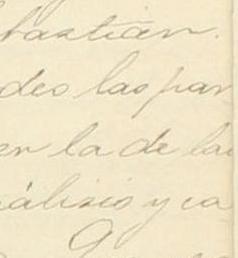 bastián.
deo las par
en la de la
álisis y ca